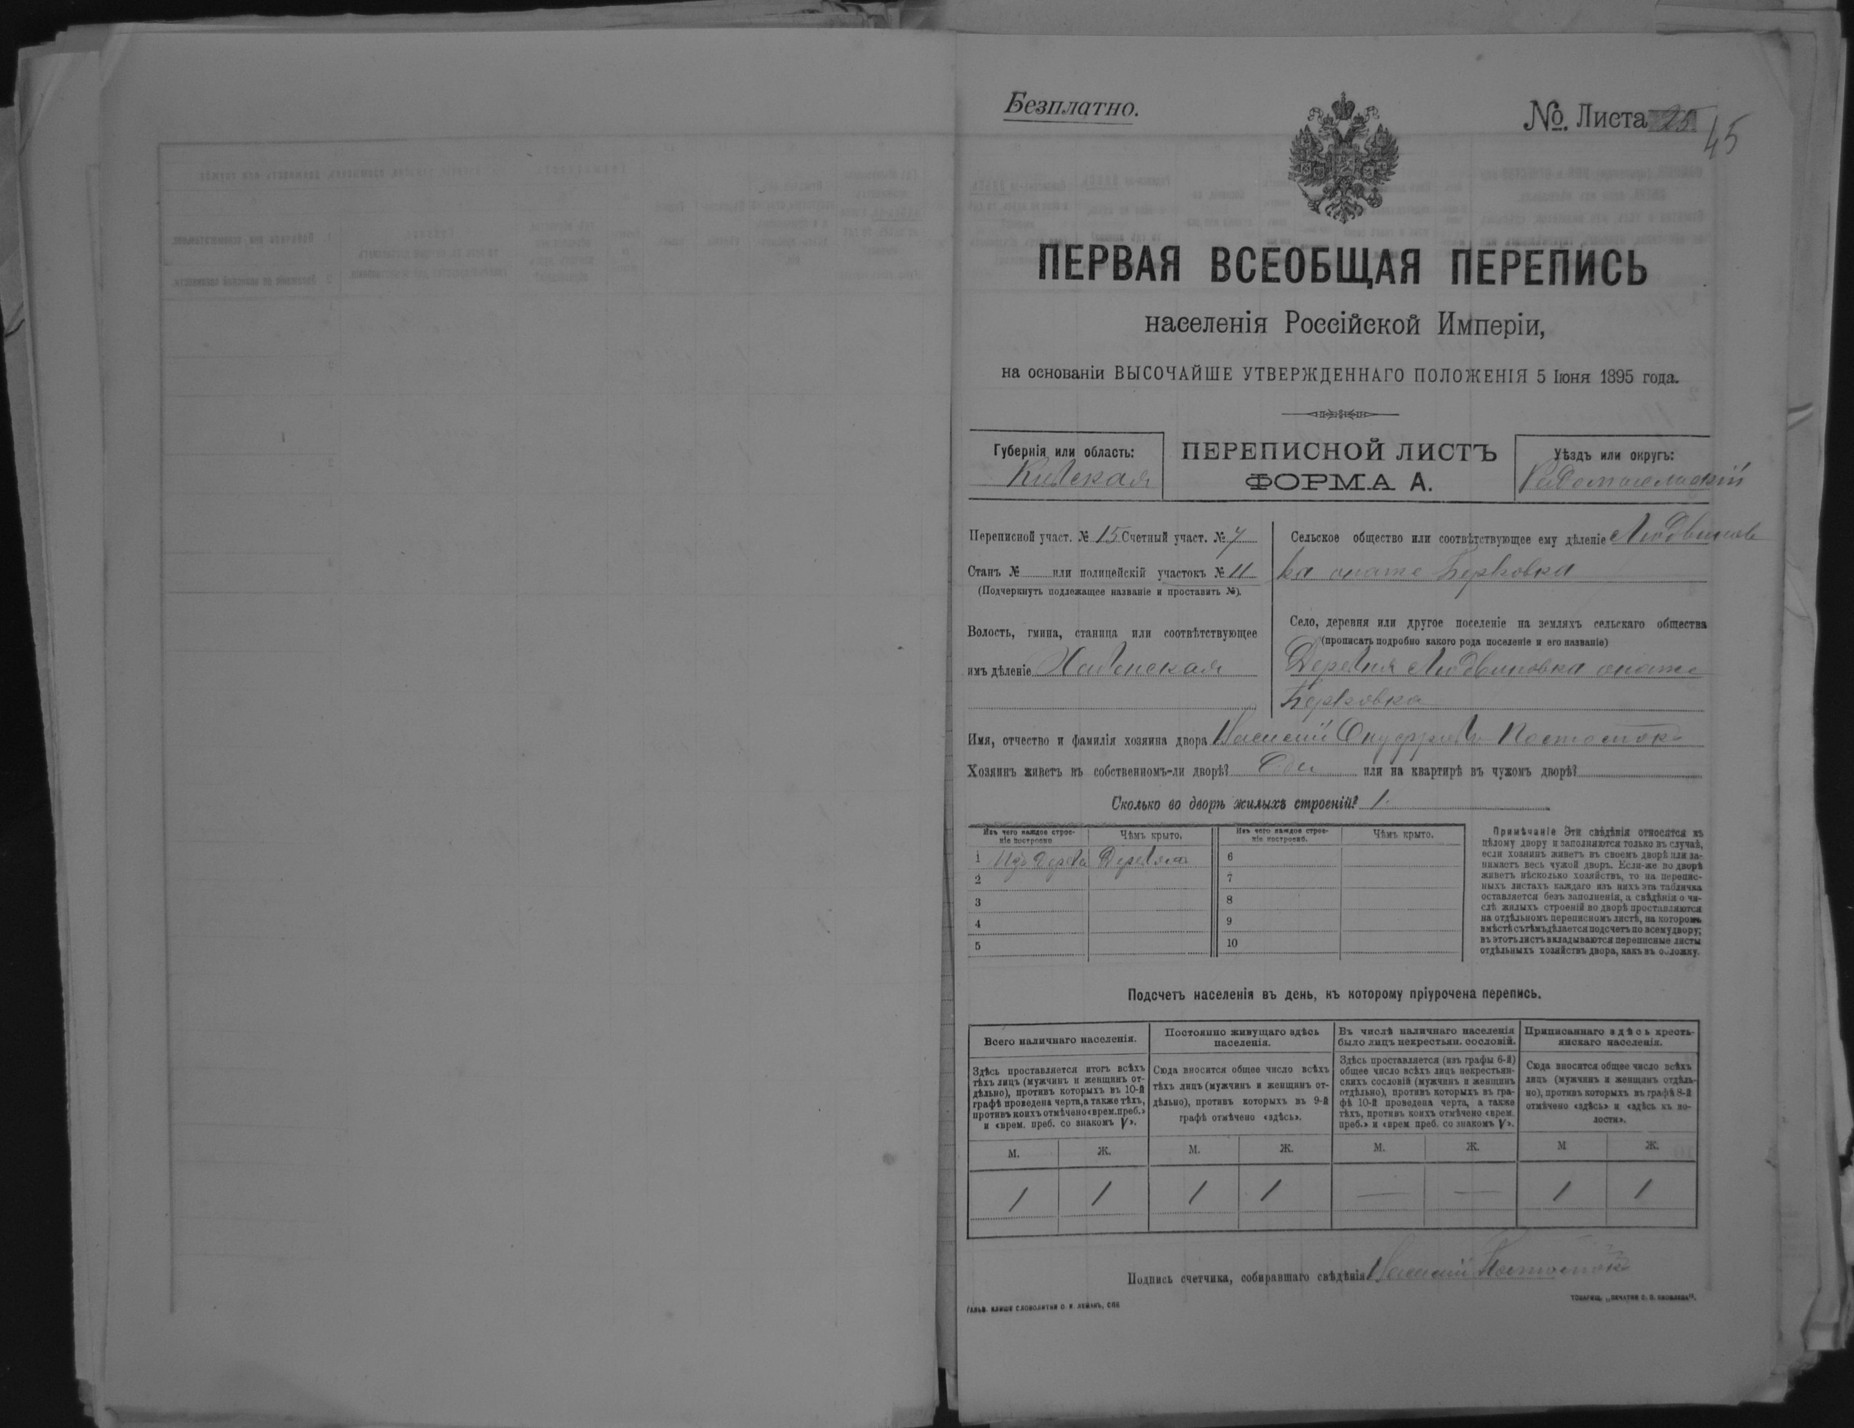 Безплатно.
№ Листа 25 45
ПЕРВАЯ ВСЕОБЩАЯ ПЕРЕПИСЬ
населенія Россійской Имперіи,
на основаніи ВЫСОЧАЙШЕ УТВЕРЖДЕННАГО ПОЛОЖЕНІЯ 5 Іюня 1895 года.
Губернія или область:
Кіевская
ПЕРЕПИСНОЙ ЛИСТЪ
ФОРМА А.
Уѣздъ или округъ:
Радомысльскій
Переписной участ. № 15 Счетный участ. № 7
Станъ № или полицейскій участокъ № 11
(Подчеркнуть подлежащее названіе и проставить №).
Волость, гмина, станица или соотвѣтствующее
имъ дѣленіе Хабенская
Сельское общество или соотвѣтствующее ему дѣленіе Людвинов
ка онаже Берковка
Село, деревня или другое поселеніе на земляхъ сельскаго общества
(прописать подробно какого рода поселеніе и его названіе)
Деревня Людвиновка онаже
Берковка
Имя, отчество и фамилія хозяина двора Василій Онуфріевъ
Хозяинъ живетъ въ собственномъ-ли дворѣ? или на квартирѣ въ чужомъ дворѣ?
Сколько во дворѣ жилыхъ строеній? 1.
Изъ чего каждое строе-
ніе построено.
Чѣмъ крыто.
Изъ чего каждое строе-
ніе построено.
Чѣмъ крыто.
1 Изъ дерева Деревом
6
2
7
3
8
4
9
5
10
Примѣчаніе Эти свѣдѣнія относятся къ
цѣлому двору и заполняются только въ случаѣ,
если хозяинъ живетъ въ своемъ дворѣ или за-
нимаетъ весь чужой дворъ. Если-же во дворѣ
живетъ нѣсколько хозяйствъ, то на перепис-
ныхъ листахъ каждаго изъ нихъ эта табличка
оставляется безъ заполненія, а свѣдѣнія о чи-
слѣ жилыхъ строеній во дворѣ проставляются
на отдѣльномъ переписномъ листѣ, на которомъ
вмѣстѣ съ тѣмъ дѣлается подсчетъ по всему двору;
въ этотъ листъ вкладываются переписные листы
отдѣльныхъ хозяйствъ двора, какъ въ обложку.
Подсчетъ населенія въ день, къ которому пріурочена перепись.
Всего наличнаго населенія.
Постоянно живущаго здѣсь
населенія.
Въ числѣ наличнаго населенія
было лицъ некрестьян. сословій.
Приписаннаго здѣсь кресть-
янскаго населенія.
Здѣсь проставляется итогъ всѣхъ
тѣхъ лицъ (мужчинъ и женщинъ от-
дѣльно), противъ которыхъ въ 10-й
графѣ проведена черта, а также тѣхъ,
противъ коихъ отмѣчено «врем. преб.»
и «врем. преб. со знакомъ V».
Сюда вносится общее число всѣхъ
тѣхъ лицъ (мужчинъ и женщинъ от-
дѣльно), противъ которыхъ въ 9-й
графѣ отмѣчено «здѣсь».
Здѣсь проставляется (изъ графы 6-й)
общее число всѣхъ лицъ некрестьян-
скихъ сословій (мужчинъ и женщинъ
отдѣльно), противъ которыхъ въ гра-
фѣ 10-й проведена черта, а также
тѣхъ, противъ коихъ отмѣчено «врем.
преб.» и «врем преб. со знакомъ V».
Сюда вносится общее число всѣхъ
лицъ (мужчинъ и женщинъ отдѣль-
но), противъ которыхъ въ графѣ 8-й
отмѣчено «здѣсь» и «здѣсь къ во-
лости».
М. Ж. М. Ж. М. Ж. М Ж.
1 1 1 1 — — 1 1
Подпись счетчика, собиравшаго свѣдѣнія Василій